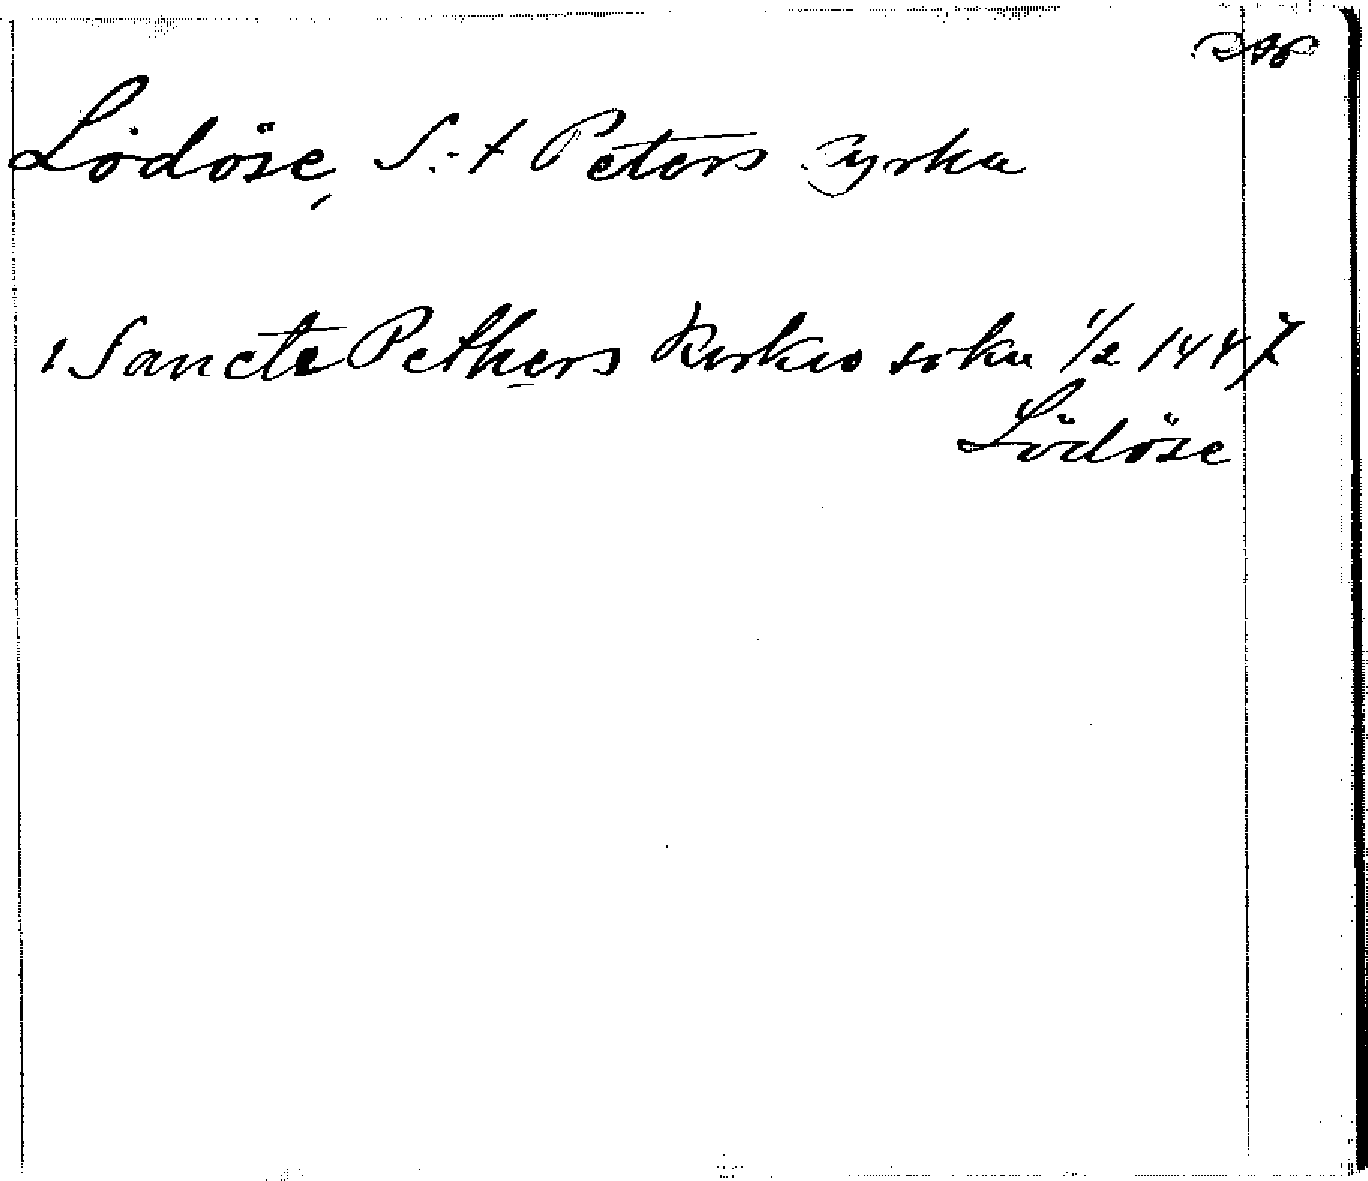 RAP
Lödöse, S:t Peters kyrka
i Sancte Pethers Kirkio sokn 1/2 1447
Lödöse